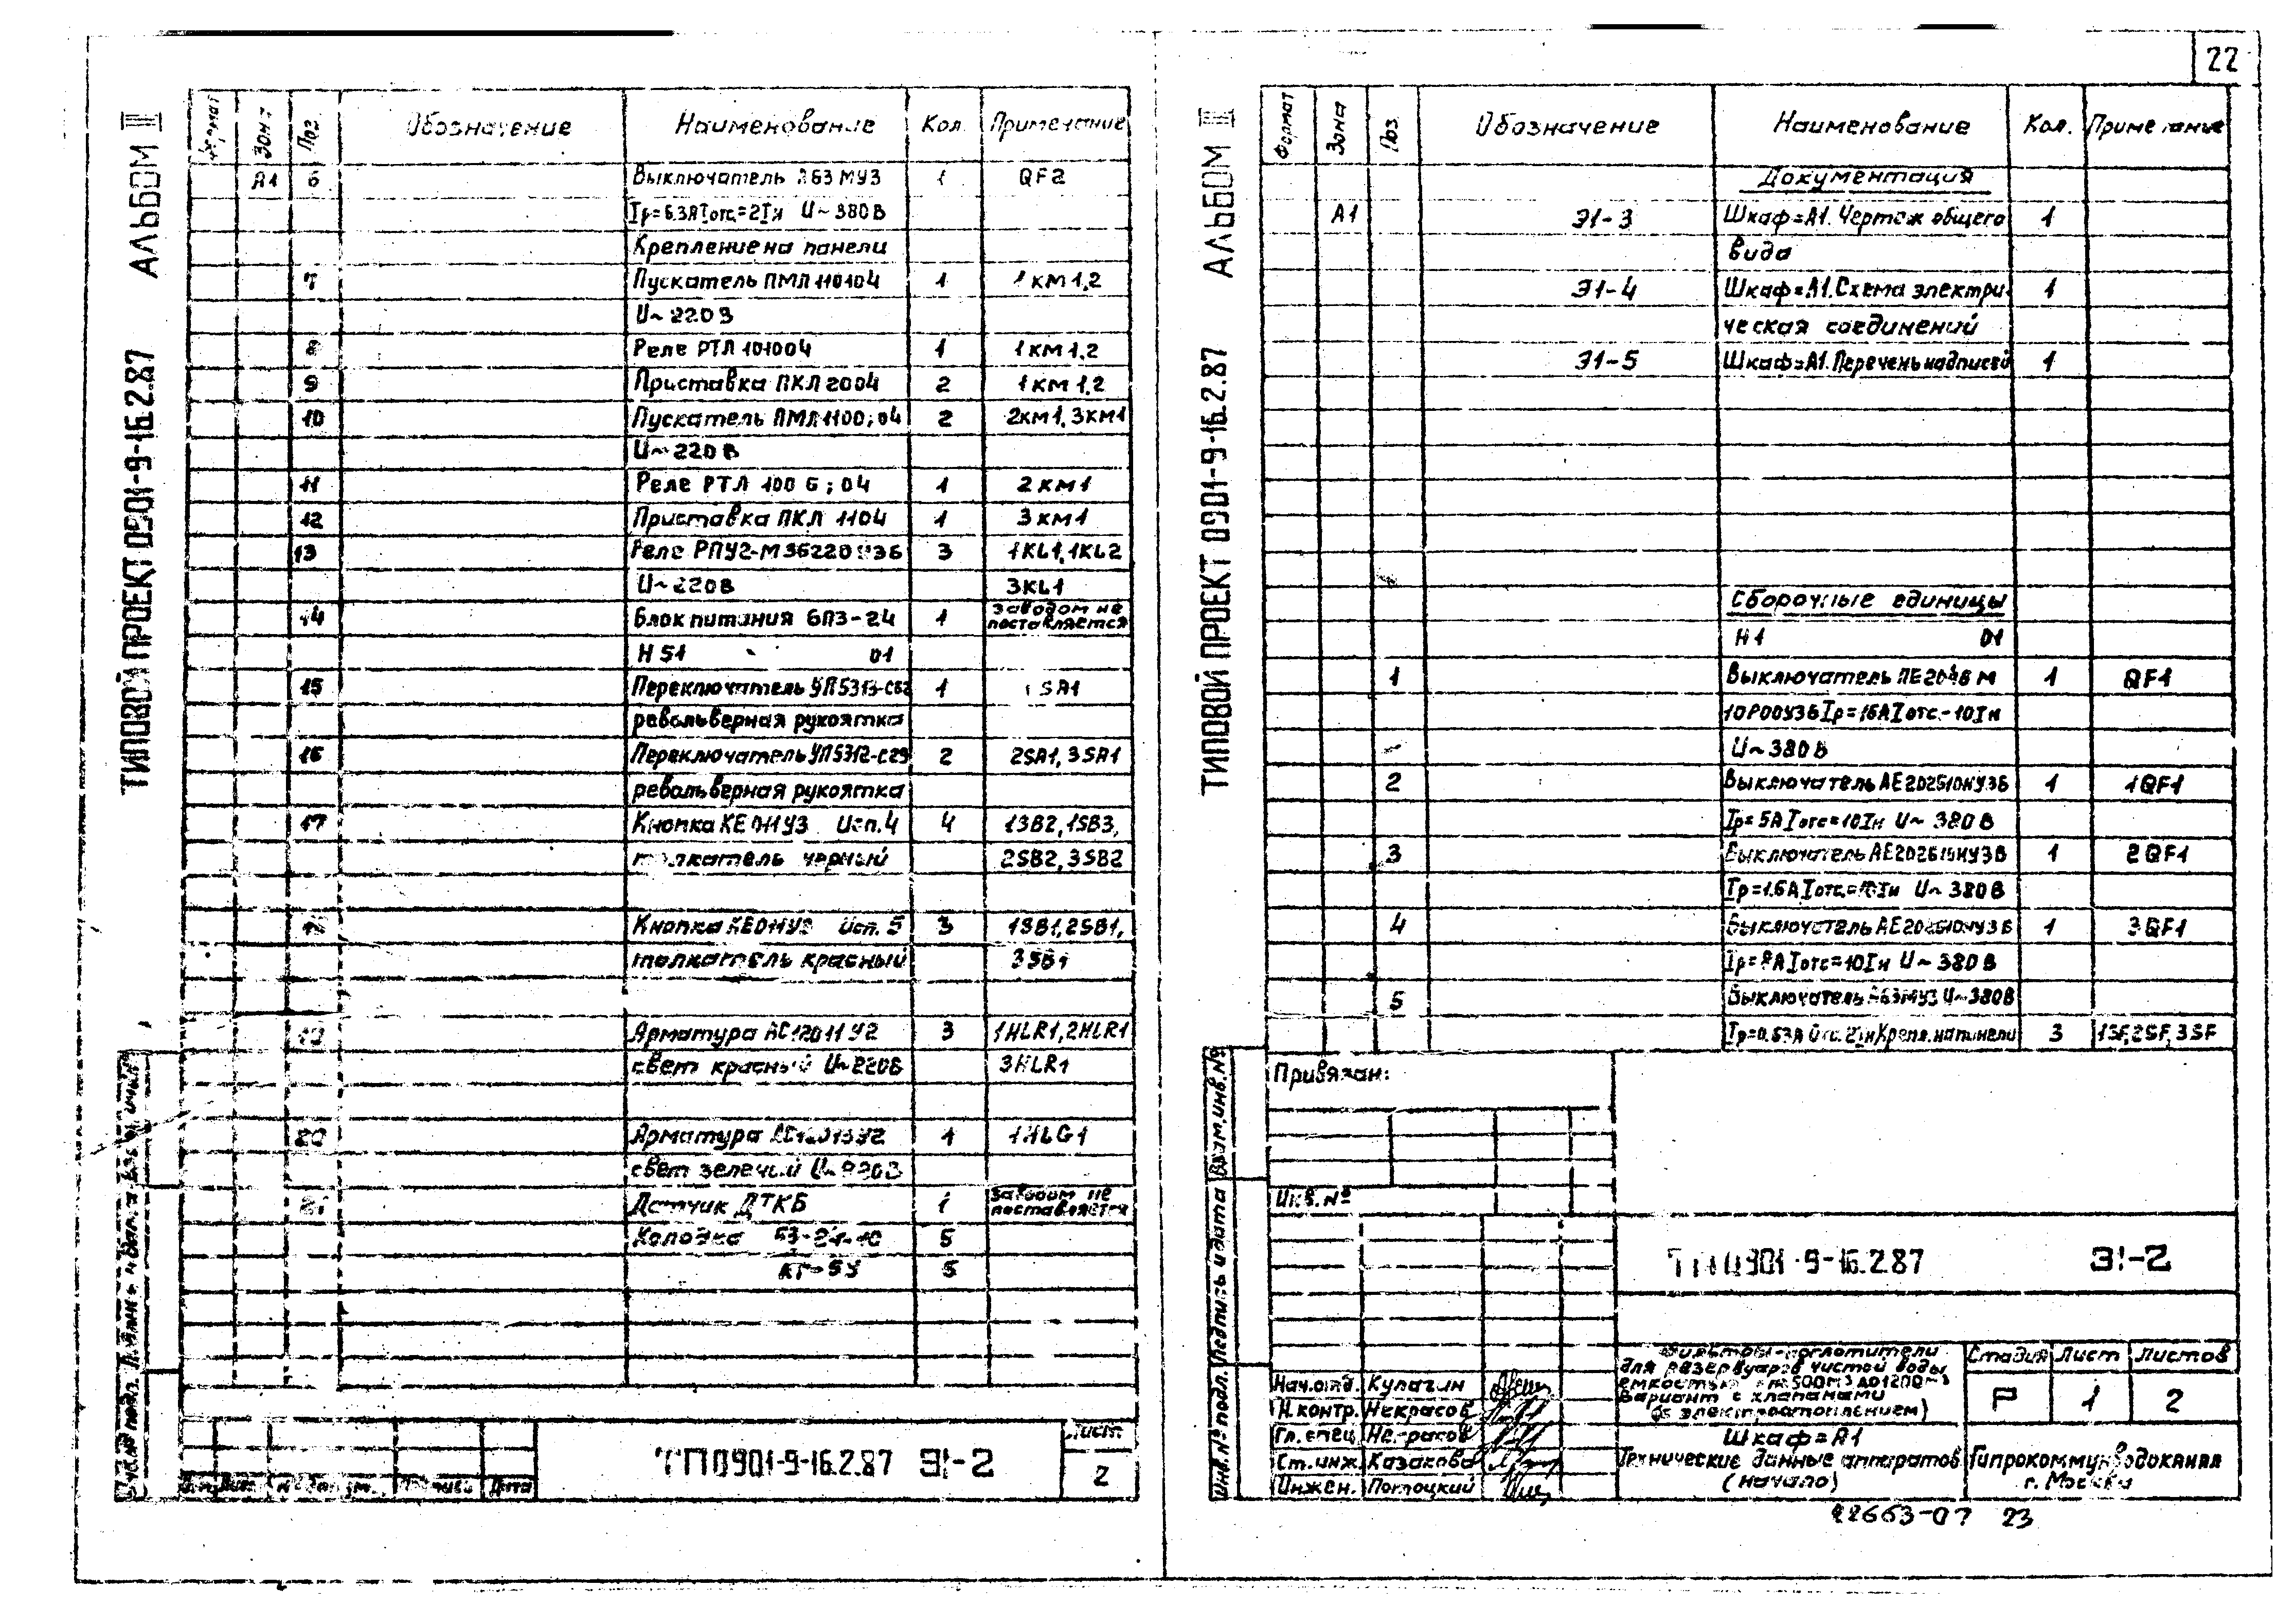 22
ТИПОВОЙ ПРОЕКТ 0901-9-16.2.87 АЛЬБОМ III
Зона Поз Обозначение Наименование Кол. Примечание
А1 6 Выключатель А63 МУЗ 1 QF2
Iр=6.3А Iотс.=2Iн U~380В
Крепление на панели
7 Пускатель ПМЛ 110104 1 1КМ1,2
U~220В
8 Реле РТЛ 101004 1 1КМ1.2
9 Приставка ПКЛ 2004 2 1КМ1,2
10 Пускатель ПМЛ 1100;04 2 2КМ1, 3КМ1
U~220В
11 Реле РТЛ 100 6;04 1 2КМ1
12 Приставка ПКЛ 1104 1 3КМ1
13 Реле РПУ2-М 36220 УЗБ 3 1KL1, 1KL2
U~220В 3KL1
14 Блок питания БПЗ-24 1 заводом не поставляется
Н 51 01
15 Переключатель УП5313-С62 1 1SA1
револьверная рукоятка
16 Переключатель УП5312-С29 2 2SA1, 3SA1
револьверная рукоятка
17 Кнопка КЕ 011 УЗ Исп.4 4 1SB2, 1SB3,
толкатель черный 2SB2, 3SB2
18 Кнопка КЕ011У2 Исп. 5 3 1SB1, 2SB1,
толкатель красный 3SB1
19 Арматура АС12011У2 3 1HLR1, 2HLR1
свет красный U~220В 3HLR1
20 Арматура АС12013У2 1 1HLG1
свет зеленый U~220В
21 Датчик ДТКБ 1 заводом не поставляется
Колодка БЗ-24-10 5
КГ-5У 5
ТП 0901-9-16.2.87 Э1-2
Лист
2
Дата
ТИПОВОЙ ПРОЕКТ 0901-9-16.2.87 АЛЬБОМ III
Формат Зона Поз. Обозначение Наименование Кол. Примечание
Документация
А1 Э1-3 Шкаф=А1. Чертеж общего 1
вида
Э1-4 Шкаф=А1. Схема электри- 1
ческая соединений
Э1-5 Шкаф=А1. Перечень надписей 1
Сборочные единицы
Н1 01
1 Выключатель АЕ2046М 1 QF1
10Р00У3Б Iр=16А Iотс.-10Iн
U~380В
2 Выключатель АЕ202610НУ3Б 1 1QF1
Iр=5А Iотс=10Iн U~380В
3 Выключатель АЕ202610НУ3Б 1 2QF1
Iр=1.6А Iотс.=10Iн U~380В
4 Выключатель АЕ202610НУ3Б 1 3QF1
Iр=8А Iотс=10Iн U~380В
5 Выключатель А63МУ3 U~380В
Iр=0.63А Отс.2Iн Крепл. на панели 3 1SF, 2SF, 3SF
Привязан:
Инв. №
Инв. № подл. Подпись и дата Взам. инв. №
ТП 0901-9-16.2.87 Э1-2
Фильтры-поглотители
для резервуаров чистой воды
Вариант с клапанами
(с электроотоплением)
Стадия Лист Листов
Р 1 2
Нач.отд. Кулагин
Н.контр. Некрасов
Гл.спец Некрасов
Ст.инж. Казакова
Инжен. Потоцкий
Шкаф=А1
Технические данные аппаратов
(начало)
Гипрокоммунводоканал
г. Москва
22663-07 23